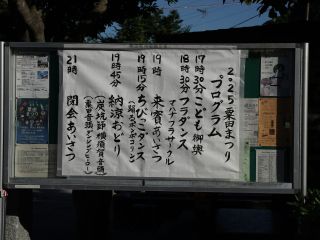 2025粟田まつり
プログラム
17時30分 こども御輿
18時30分 フラダンス
マハナフラサークル
19時 来賓あいさつ
19時15分 ちびっこダンス
(踊るポンポコリン)
19時45分 納涼おどり
(炭坑節 横須賀音頭)
21時 閉会あいさつ